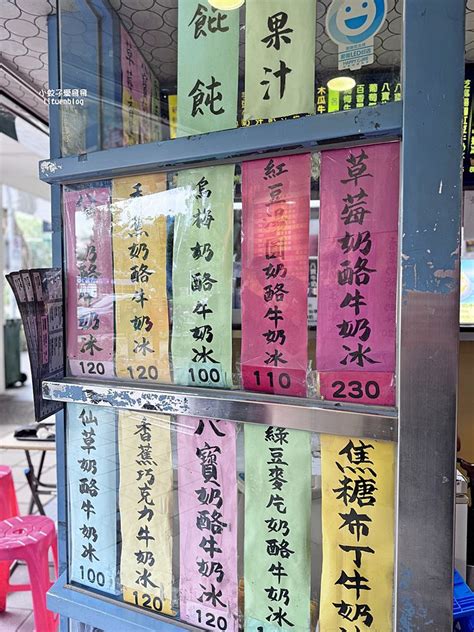 小蚊子愛飛飛
餛飩
果汁
120
香蕉奶酪牛奶冰
120
烏梅奶酪牛奶冰
100
紅豆湯圓奶酪牛奶冰
110
草莓奶酪牛奶冰
230
仙草奶酪牛奶冰
100
香蕉巧克力牛奶冰
120
八寶奶酪牛奶冰
120
綠豆麥片奶酪牛奶
焦糖布丁牛奶